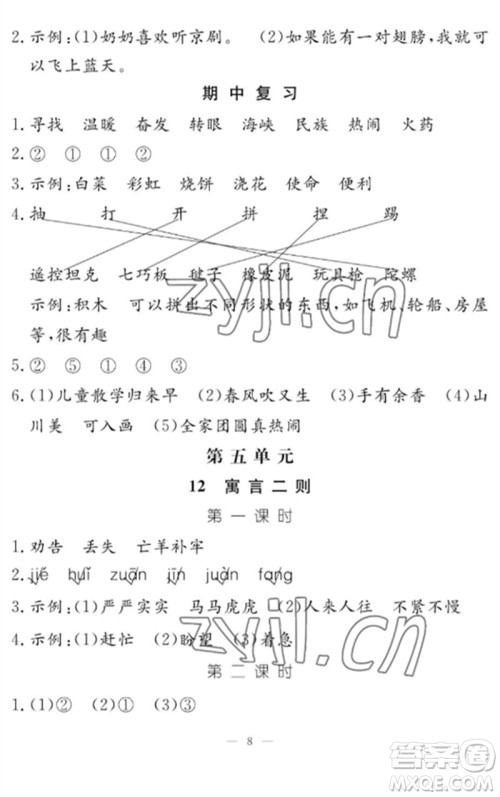 2. 示例:(1)奶奶喜欢听京剧。 (2)如果能有一对翅膀,我就可
以飞上蓝天。
期中复习
1. 寻找 温暖 奋发 转眼 海峡 民族 热闹 火药
2. ② ① ① ②
3. 示例:白菜 彩虹 烧饼 浇花 使命 便利
4. 抽 打 开 拼 捏 踢
遥控坦克 七巧板 毽子 橡皮泥 玩具枪 陀螺
示例:积木 可以拼出不同形状的东西,如飞机、轮船、房屋
等,很有趣
5. ② ⑤ ① ④ ③
6. (1)儿童散学归来早 (2)春风吹又生 (3)手有余香 (4)山
川美 可入画 (5)全家团圆真热闹
第五单元
12 寓言二则
第一课时
1. 劝告 丢失 亡羊补牢
2. jiē buǐ zuān jīn juàn fang
3. 示例:(1)严严实实 马马虎虎 (2)人来人往 不紧不慢
4. 示例:(1)赶忙 (2)盼望 (3)着急
第二课时
1. (1)② (2)① (3)②
8
zyjl.cn
zyjl.cn
答案圈
MXQE.COM